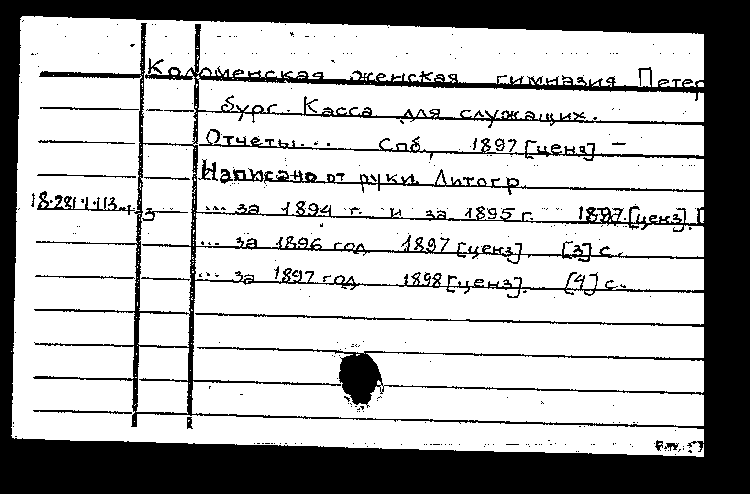 Коломенская женская гимназия Петер
бург. Касса для служащих.
Отчеты... Спб., 1897 [ценз] —
Написано от руки. Литогр.
... за 1894 г. и за 1895 г. 1897 [ценз].
... за 1896 год 1897 [ценз]. [3] с.
... за 1897 год 1898 [ценз]. [4] с.